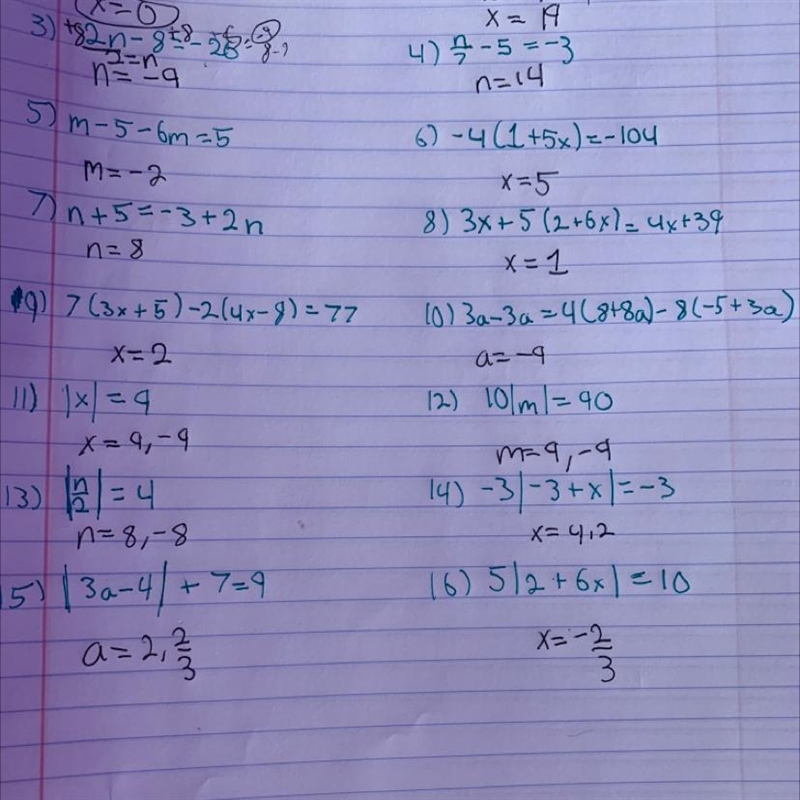 x = 0
x = 19
3) +8 2n - 8 +8 = - 26
n = -9
4) n/7 - 5 = -3
n = 14
5) m - 5 - 6m = 5
m = -2
6) -4(1+5x) = -104
x = 5
7) n + 5 = -3 + 2n
n = 8
8) 3x + 5(2+6x) = 4x + 39
x = 1
9) 7(3x+5) - 2(4x-8) = 77
x = 2
10) 3a - 3a = 4(8+8a) - 8(-5+3a)
a = -9
11) |x| = 9
x = 9, -9
12) 10|m| = 90
m = 9, -9
13) |n/2| = 4
n = 8, -8
14) -3|-3+x| = -3
x = 4, 2
15) |3a-4| + 7 = 9
a = 2, 2/3
16) 5|2+6x| = 10
x = -2/3